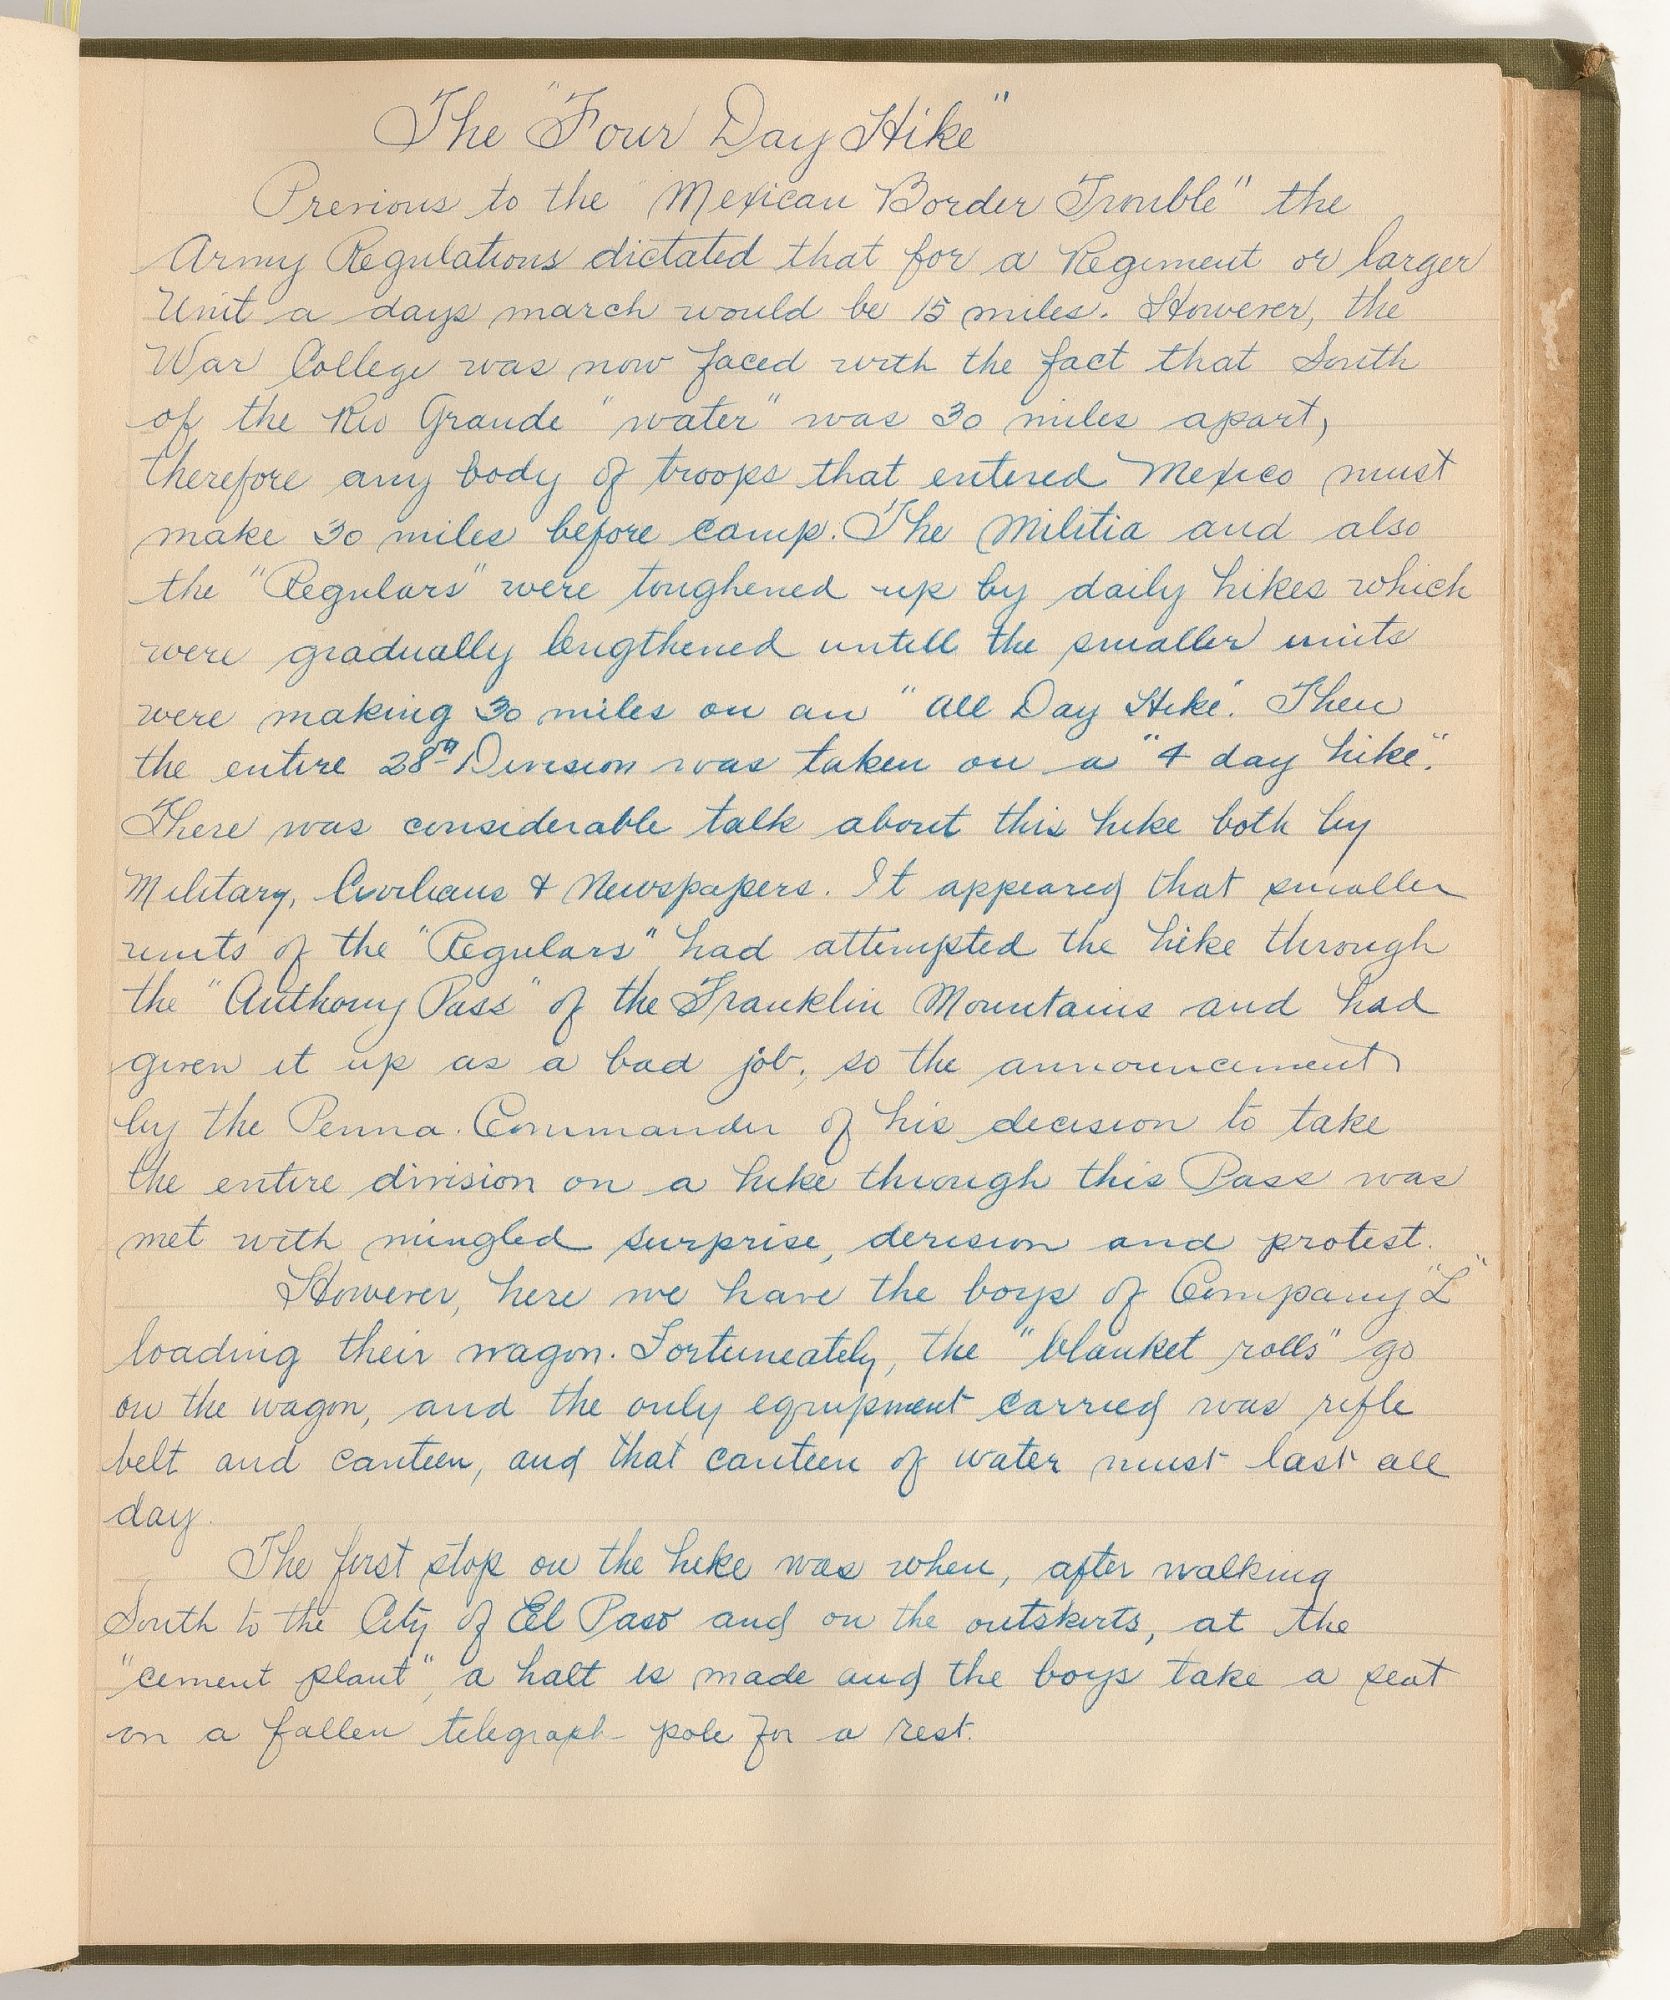 The "Four Day Hike"
Previous to the "Mexican Border Trouble" the
Army Regulations dictated that for a Regiment or larger
Unit a days march would be 15 miles. However, the
War College was now faced with the fact that South
of the Rio Grande "water" was 30 miles apart,
therefore any body of troops that entered Mexico must
make 30 miles before camp. The Militia and also
the "Regulars" were toughened up by daily hikes which
were gradually lengthened untill the smaller units
were making 30 miles on an "All Day Hike". Then
the entire 28th Division was taken on a "4 day hike".
There was considerable talk about this hike both by
Military, Civilians & Newspapers. It appeared that smaller
units of the "Regulars" had attempted the hike through
the "Anthony Pass" of the Franklin Mountains and had
given it up as a bad job, so the announcement
by the Penna. Commander of his decision to take
the entire division on a hike through this Pass was
met with mingled surprise, derision and protest.
However, here we have the boys of Company "L"
loading their wagon. Fortuneately, the "blanket rolls" go
on the wagon, and the only equipment carried was rifle
belt and canteen, and that canteen of water must last all
day.
The first stop on the hike was when, after walking
South to the City of El Paso and on the outskirts, at the
"cement plant", a halt is made and the boys take a seat
on a fallen telegraph pole for a rest.